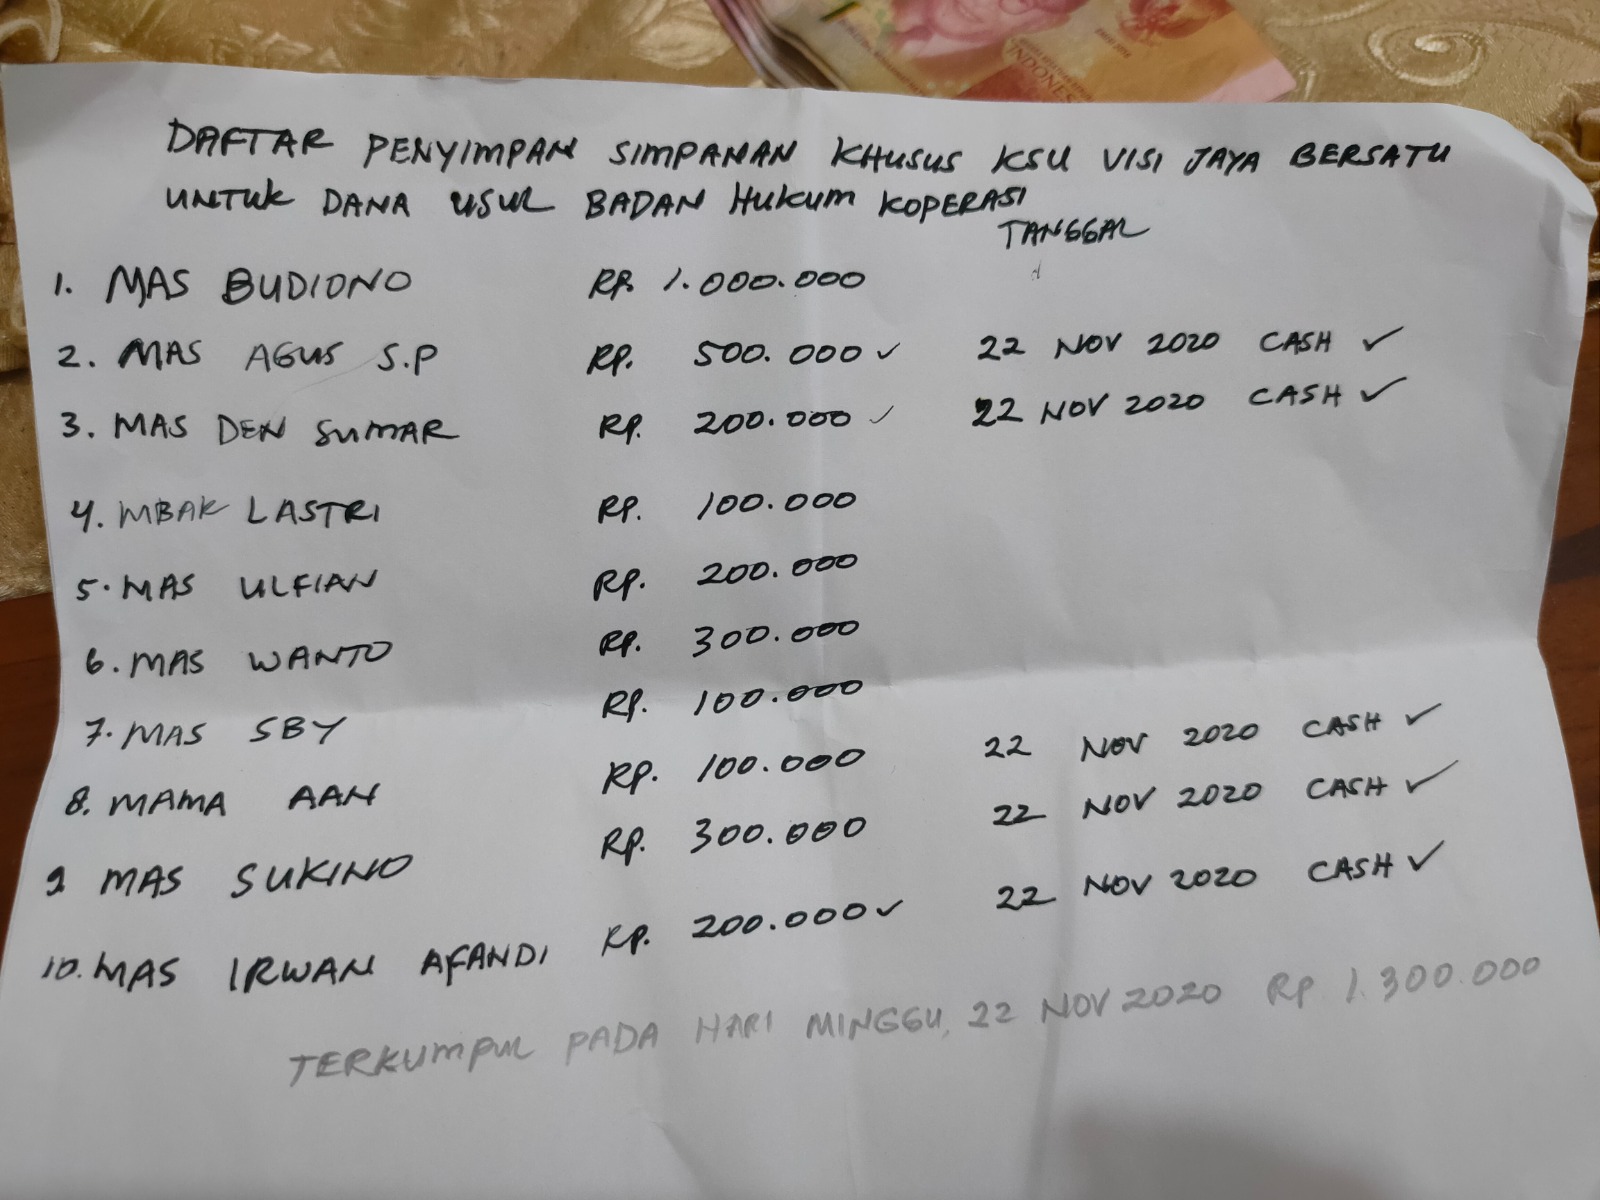 DAFTAR PENYIMPAN SIMPANAN KHUSUS KSU VISI JAYA BERSATU
UNTUK DANA USUL BADAN HUKUM KOPERASI
TANGGAL
1. MAS BUDIONO RP. 1.000.000
2. MAS AGUS S.P RP. 500.000 ✓ 22 NOV 2020 CASH ✓
3. MAS DEN SUMAR RP. 200.000 ✓ 22 NOV 2020 CASH ✓
4. MBAK LASTRI RP. 100.000
5. MAS ULFIAN RP. 200.000
6. MAS WANTO RP. 300.000
7. MAS SBY RP. 100.000
8. MAMA AAN RP. 100.000 22 NOV 2020 CASH ✓
9 MAS SUKINO RP. 300.000 22 NOV 2020 CASH ✓
10. MAS IRWAN AFANDI RP. 200.000 ✓ 22 NOV 2020 CASH ✓
TERKUMPUL PADA HARI MINGGU, 22 NOV 2020 RP 1.300.000